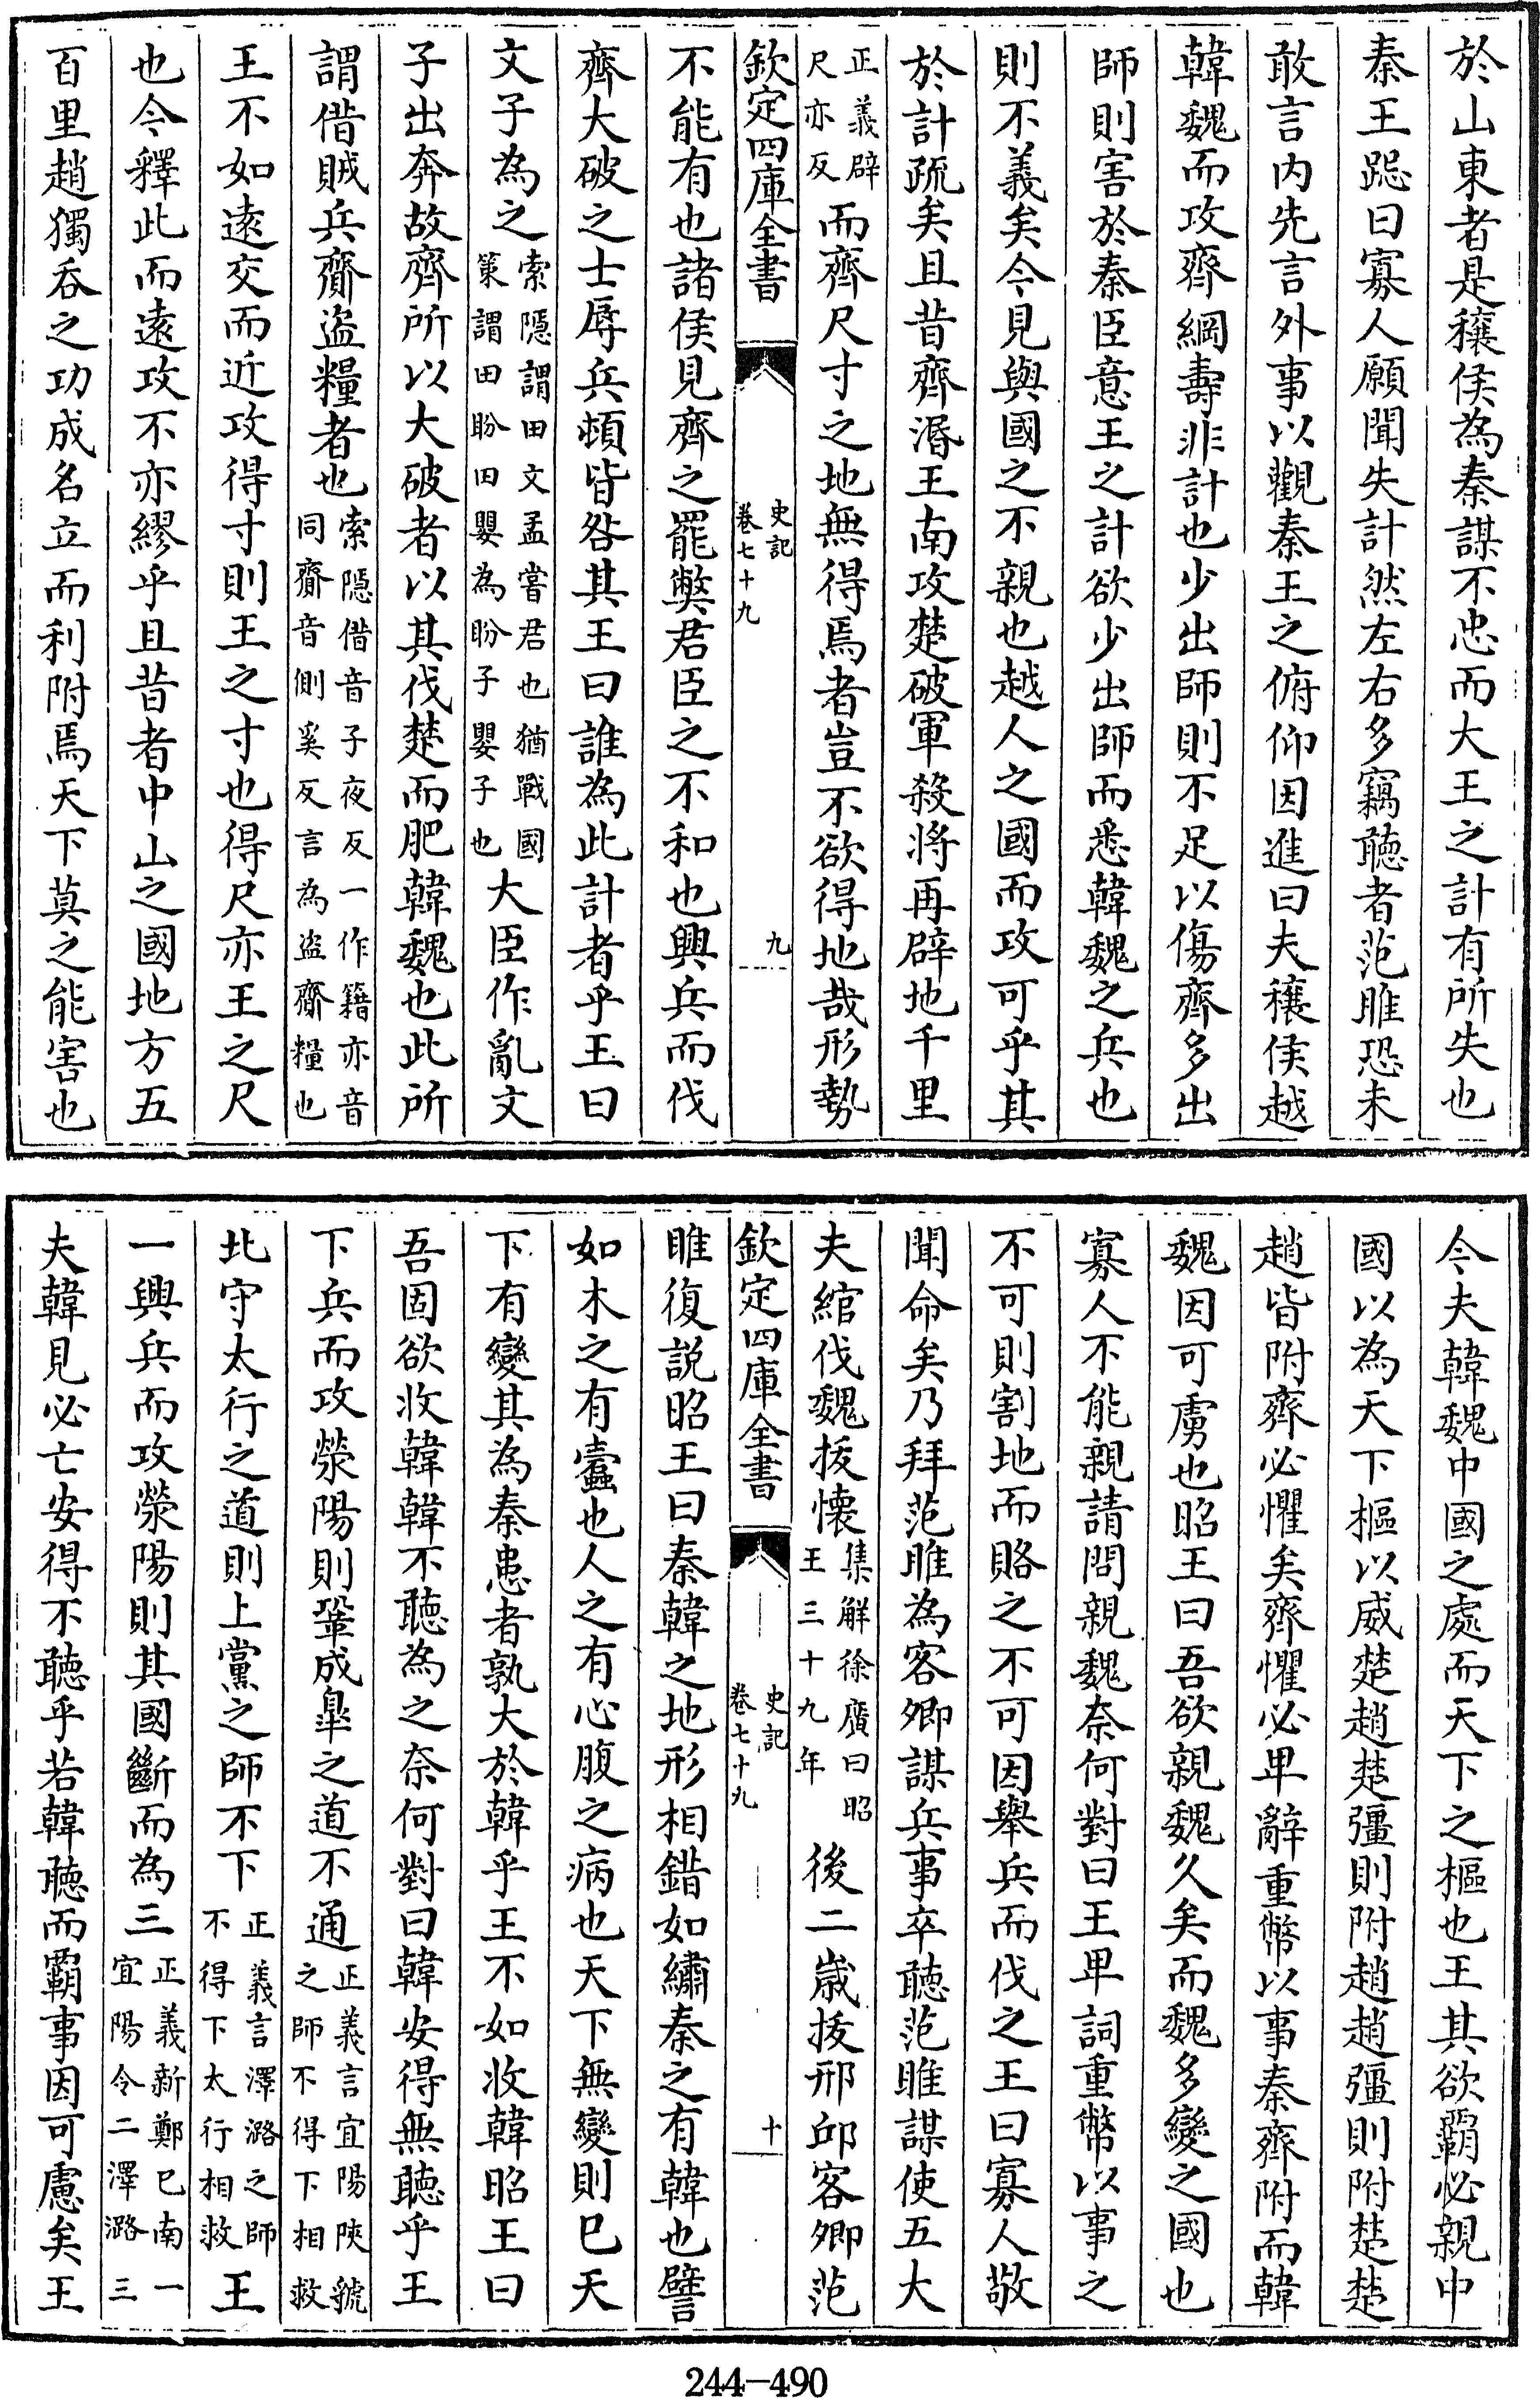 於山東者是穰侯為秦謀不忠而大王之計有所失也
秦王跽曰寡人願聞失計然左右多竊聽者范睢恐未
敢言内先言外事以觀秦王之俯仰因進曰夫穰侯越
韓魏而攻齊綱壽非計也少出師則不足以傷齊多出
師則害於秦臣意王之計欲少出師而悉韓魏之兵也
則不義矣今見與國之不親也越人之國而攻可乎其
於計疏矣且昔齊湣王南攻楚破軍殺將再辟地千里
正義辟
尺亦反
而齊尺寸之地無得焉者豈不欲得地哉形勢
欽定四庫全書
史記
卷七十九
九
不能有也諸侯見齊之罷弊君臣之不和也興兵而伐
齊大破之士辱兵頓皆咎其王曰誰為此計者乎王曰
文子為之
索隱謂田文孟嘗君也猶戰國
策謂田盼田嬰為盼子嬰子也
大臣作亂文
子出奔故齊所以大破者以其伐楚而肥韓魏也此所
謂借賊兵齎盜糧者也
索隱借音子夜反一作籍亦音
同齎音側奚反言為盜齎糧也
王不如遠交而近攻得寸則王之寸也得尺亦王之尺
也今釋此而遠攻不亦繆乎且昔者中山之國地方五
百里趙獨吞之功成名立而利附焉天下莫之能害也
今夫韓魏中國之處而天下之樞也王其欲霸必親中
國以為天下樞以威楚趙楚彊則附趙趙彊則附楚楚
趙皆附齊必懼矣齊懼必卑辭重幣以事秦齊附而韓
魏因可虜也昭王曰吾欲親魏久矣而魏多變之國也
寡人不能親請問親魏奈何對曰王卑詞重幣以事之
不可則割地而賂之不可因舉兵而伐之王曰寡人敬
聞命矣乃拜范睢為客卿謀兵事卒聽范睢謀使五大
夫綰伐魏拔懷
集解徐廣曰昭
王三十九年
後二歲拔邢邱客卿范
欽定四庫全書
史記
卷七十九
十
睢復説昭王曰秦韓之地形相錯如繡秦之有韓也譬
如木之有蠹也人之有心腹之病也天下無變則已天
下有變其為秦患者孰大於韓乎王不如收韓昭王曰
吾固欲收韓韓不聽為之奈何對曰韓安得無聽乎王
下兵而攻滎陽則鞏成臯之道不通
正義言宜陽陝虢
之師不得下相救
北守太行之道則上黨之師不下
正義言澤潞之師
不得下太行相救
王
一興兵而攻滎陽則其國斷而為三
正義新鄭已南一
宜陽令二澤潞三
夫韓見必亡安得不聽乎若韓聽而霸事因可慮矣王
244-490